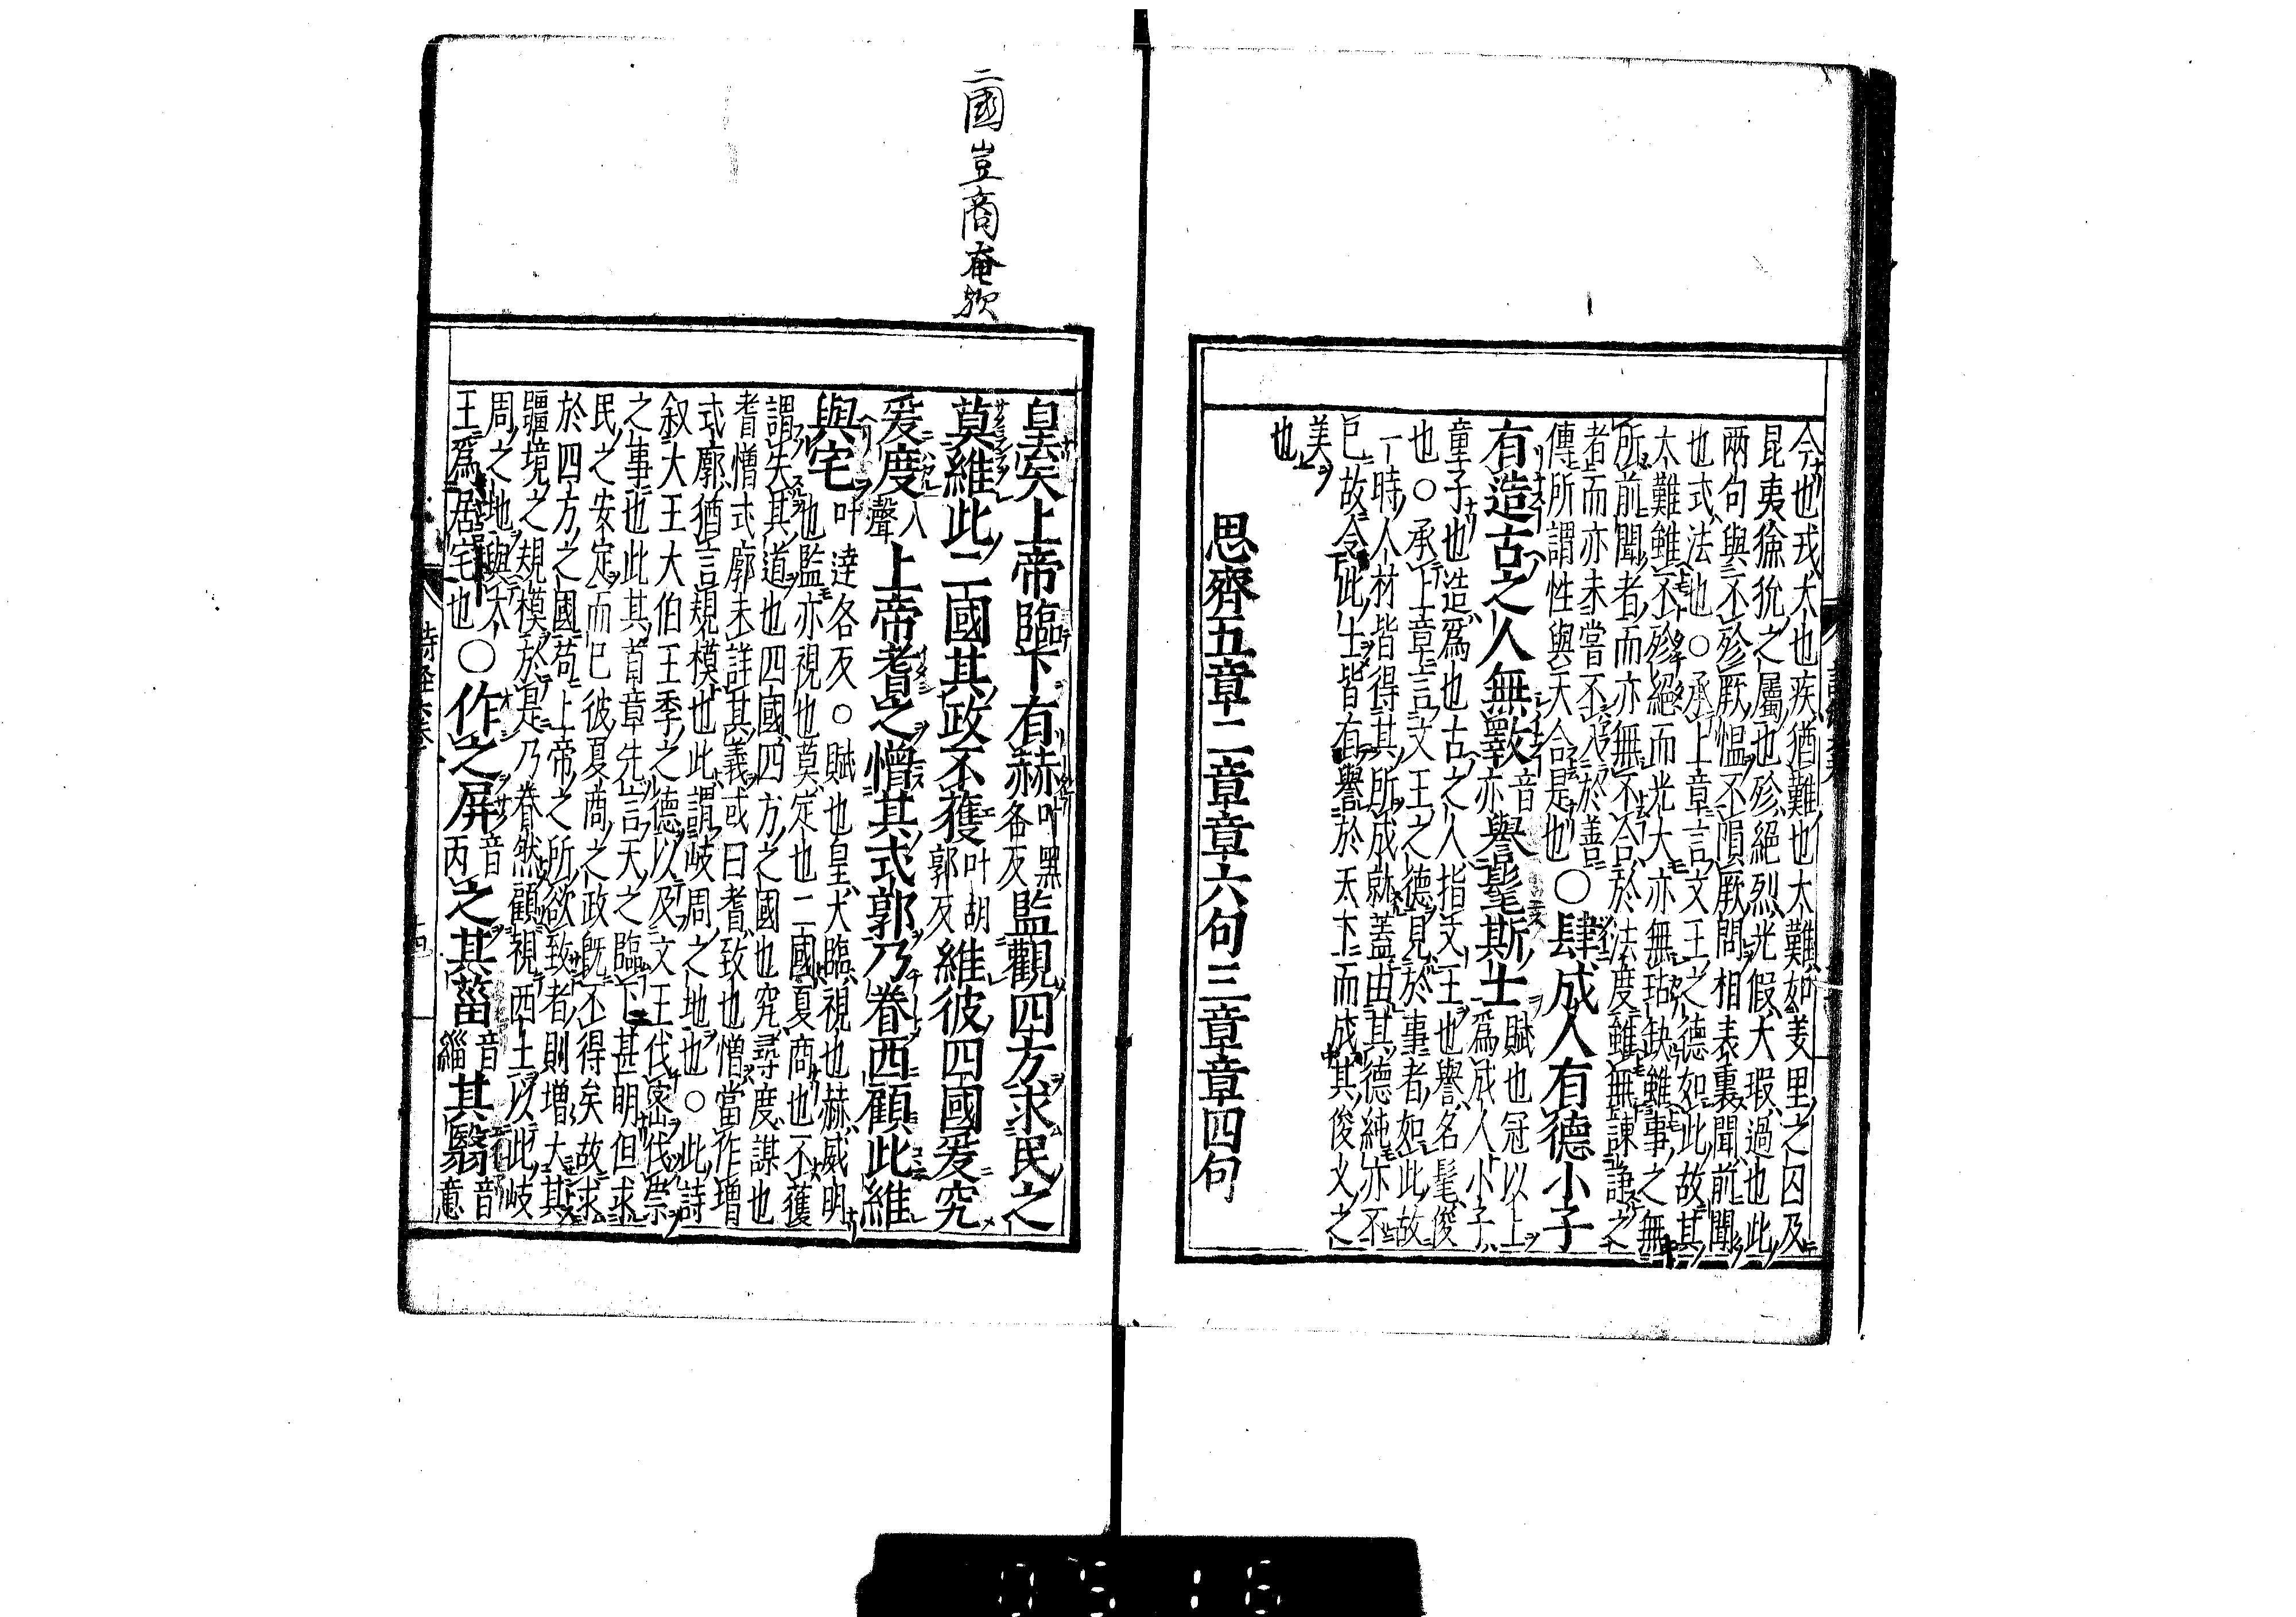 今也戎大也疾猶難也大難如羑里之囚及
昆夷獫狁之屬也殄絕烈光假大瑕過也此
兩句與不殄厥慍不隕厥問相表裏聞前聞
也式法也○承上章言文王之德如此故其
大難雖不殄絕而光大亦無玷缺雖事之無
所前聞者而亦無不合於法度雖無諫諍之
者而亦未嘗不入於善
傳所謂性與天合是也○肆成人有德小子
有造古之人無斁音亦譽髦斯士賦也冠以上爲成人小子
童子也造爲也古之人指文王也譽名髦俊
也○承上章言文王之德見於事者如此故
一時人材皆得其所成就蓋由其德純亦不
已故令此士皆有譽於天下而成其俊乂之
美
也
思齊五章二章章六句三章章四句
二國豈商奄歟
皇矣上帝臨下有赫叶黑各反監觀四方求民之
莫維此二國其政不獲叶胡郭反維彼四國爰究
爰度入聲上帝耆之憎其式郭乃眷西顧此維
與宅叶達各反○賦也皇大臨視也赫威明
也監亦視也莫定也二國夏商也不獲
謂失其道也四國四方之國也究尋度謀也
耆憎式廓未詳其義或曰耆致也憎當作增
式廓猶言規模也此謂岐周之地也○此詩
叙大王大伯王季之德以及文王伐密伐崇
之事也此其首章先言天之臨下甚明但求
民之安定而已彼夏商之政既不得矣故求
於四方之國苟上帝之所欲致者則增大其
疆境之規模於是乃眷然顧視西土以此岐
周之地與大
王爲居宅也○作之屏音丙之其菑音緇其翳音意